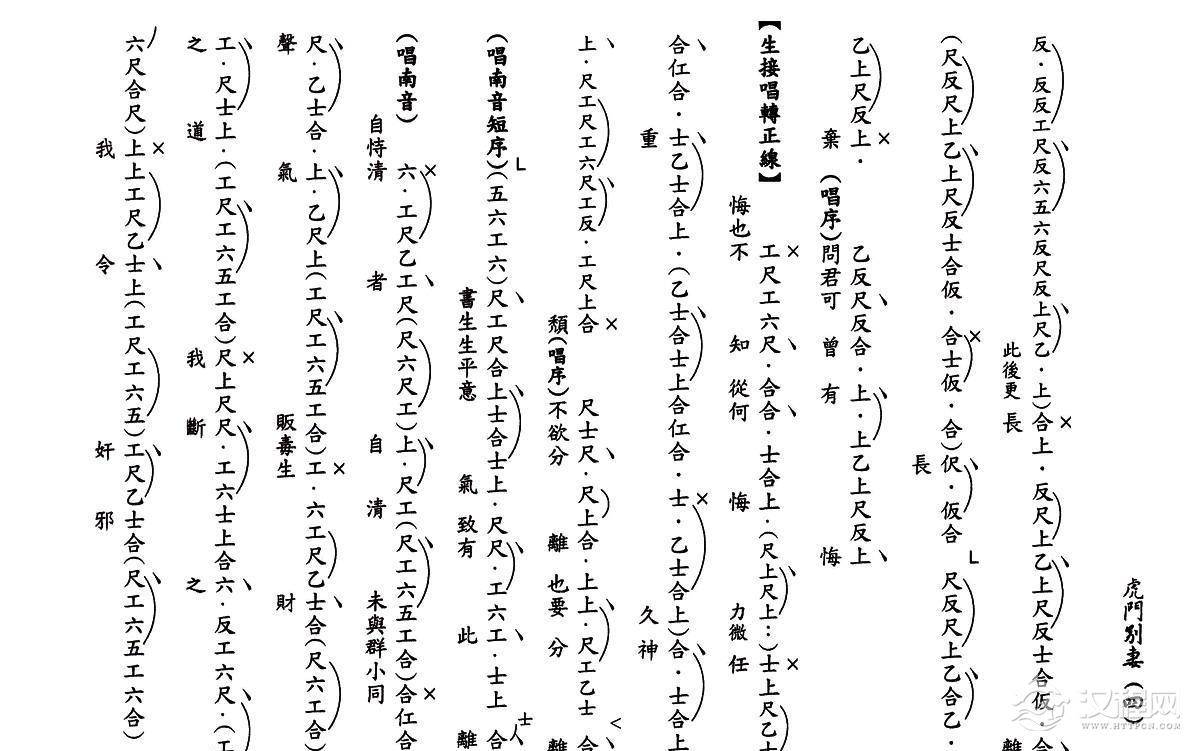 虎門別妻（四）
反．反反工尺反六五六反尺反上尺乙．上）合上．反尺上乙上尺反士合仮．合
此後更長 離
（尺反尺上乙上尺反士合仮．合士仮．合）伬．仮合 尺反尺上乙合乙．
長
乙上尺反上． 乙反尺反合．上．上乙上尺反上
棄（唱序）問君可曾有悔
【生接唱轉正線】 工尺工六尺．合合．士合上．（尺上尺上：）士上尺乙士
悔也不知從何悔 力微任
合仜合．士乙士合上．（乙士合士上合仜合．士．乙士合上）合．士合上
重 久神
上．尺工尺工六尺工反．工尺上合 尺士尺．尺上合．上上．尺工乙士合
頹（唱序）不欲分離也要分
（唱南音短序）（五六工六）尺工尺合上士合士上．尺尺．工六工．士上合
書生生平意氣致有此離
（唱南音） 六．工尺乙工尺（尺六尺工）上．尺工（尺工六五工合）合仜合
自恃清者自清未與群小同
尺．乙士合．上．乙尺上（工尺工六五工合）工．六工尺乙士合（尺六工合）
聲氣 販毒生財
工．尺士上．（工尺工六五工合）尺上尺尺．工六士上合六．反工六尺．（工
之道我斷之
六尺合尺）上上工尺乙士上（工尺工六五）工尺乙士合（尺工六五工六合）
我令奸邪
汉程网
WWW.HTTPCN.COM